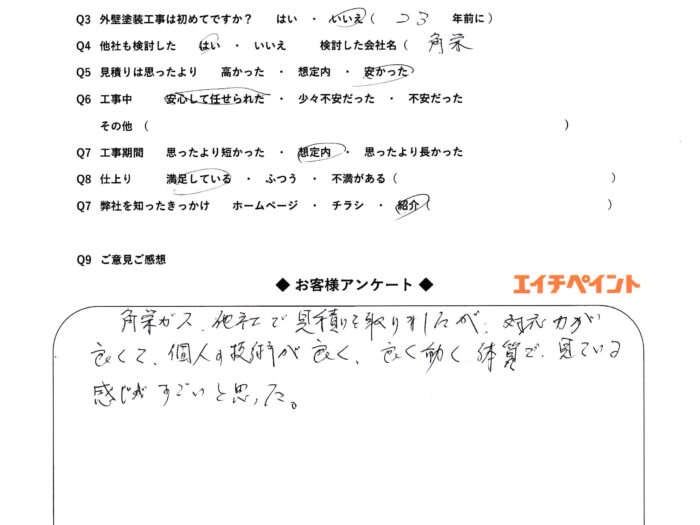 Q3 外壁塗装工事は初めてですか？ はい ・ いいえ（ 23 年前に）
Q4 他社も検討した はい ・ いいえ 検討した会社名（ 角栄
Q5 見積りは思ったより 高かった ・ 想定内 ・ 安かった
Q6 工事中 安心して任せられた ・ 少々不安だった ・ 不安だった
その他 （ ）
Q7 工事期間 思ったより短かった ・ 想定内 ・ 思ったより長かった
Q8 仕上り 満足している ・ ふつう ・ 不満がある（ ）
Q7 弊社を知ったきっかけ ホームページ ・ チラシ ・ 紹介（ ）
Q9 ご意見ご感想
◆ お客様アンケート ◆ エイチペイント
角栄ガス、他社で見積りを取りましたが、対応力が
良くて、個人の技術が良く、良く動く体質で、見ている
感じがすごいと思った。